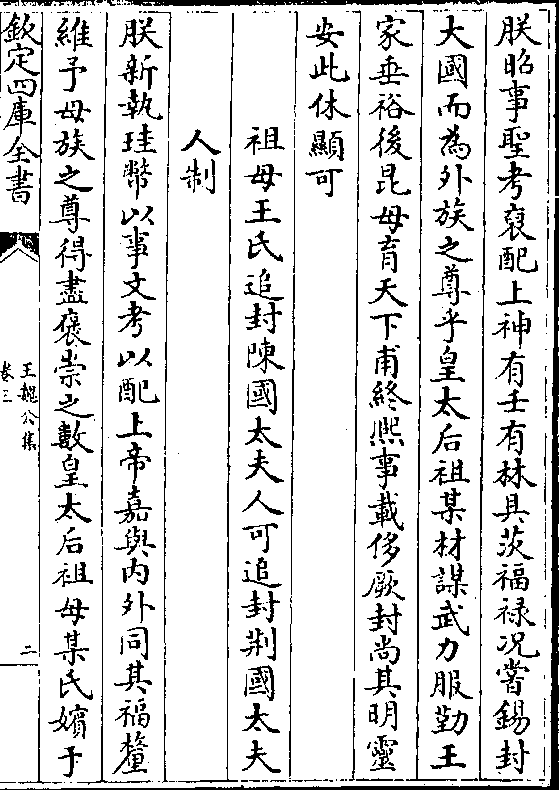 朕昭事聖考裒配上神有壬有林具茨福禄况嘗錫封
大國而為外族之尊乎皇太后祖某材謀武力服勤王
家垂裕後昆母育天下甫終熈事載侈厥封尚其明靈
安此休顯可
祖母王氏追封陳國太夫人可追封荆國太夫
人制
朕新執珪幣以事文考以配上帝嘉與内外同其福釐
維予母族之尊得盡褒崇之數皇太后祖母某氏嬪于
欽定四庫全書
王魏公集
卷三
二